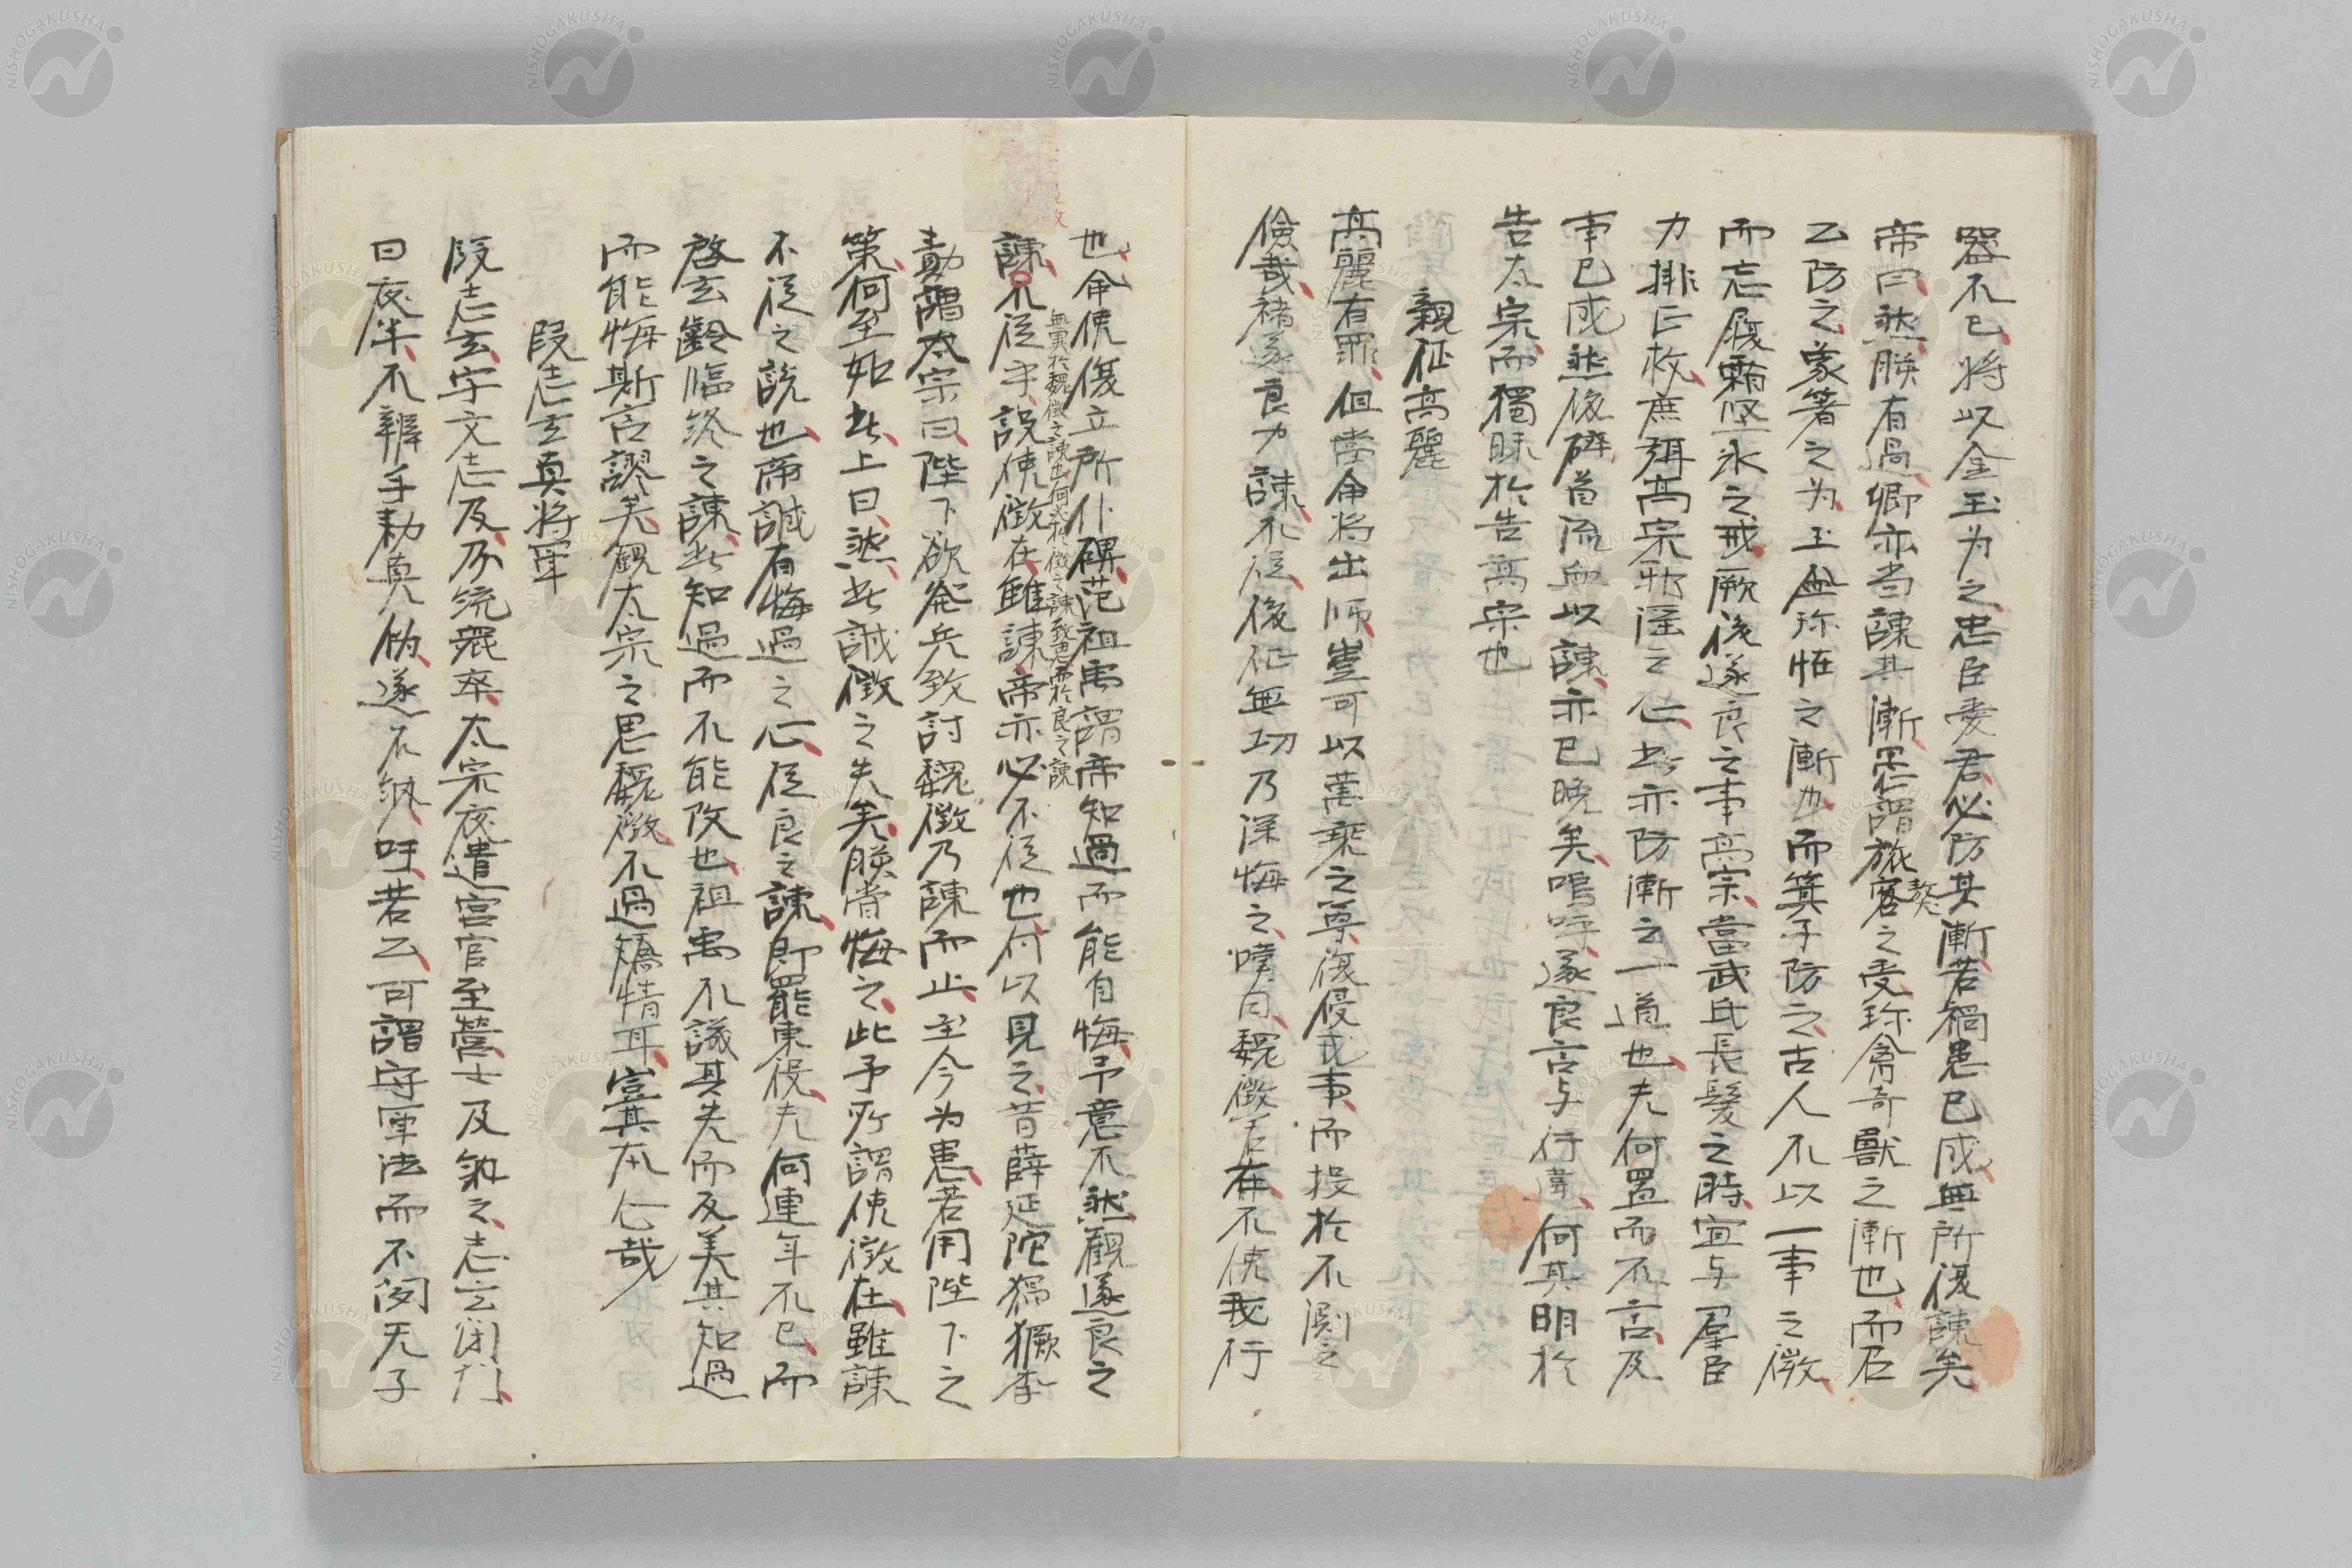 器不已将以金玉为之忠臣愛君必防其漸若禍患已成無所復諫矣
帝曰然朕有過卿亦当諫其漸罔謂旅客之受珍禽奇獸之漸也而召
獒
乙防之象箸之为玉盃珍恠之漸也而箕子防之古人不以一事之微
而忘履霜坚氷之戒厥後遂良之事高宗當武氏長髪之時宜与羣臣
力排匡救庶弭高宗邪淫之心此亦防漸之一道也夫何置而不言及
事已成然後碎首流血以諫亦已晩矣嗚呼遂良言与行違何其明於
告太宗而獨昧於告高宗也
親征高麗
高麗有罪但當命将出师豈可以萬乗之尊復侵戎事而投於不測之
儉哉褚遂良力諫不從後征無功乃深悔之嘆曰魏徴若在不使我行
也命使復立所仆碑范祖禹謂帝知過而能自悔予意不然觀遂良之
諫不從乎設使徴在雖諫帝亦必不従也何以見之昔薛延陀猖獗李
勣謂太宗曰陛下欲発兵致討魏徴乃諫而止至今为患若用陛下之
策何至如此上曰然此誠徴之失矣朕嘗悔之此予所謂使徴在雖諫
不従之説也帝誠有悔過之心従良之諫即罷東役夫何連年不已而
啓玄齡臨終之諫此知過而不能改也祖禹不議其失而反美其知過
而能悔斯言謬矣觀太宗之思魏徴不過矯情耳豈其本心哉
段志玄真将軍
段志玄宇文志及分統衆卒太宗夜遣宮官至營士及納之志玄闭门
曰夜半不辨手勅真伪遂不納吁若乙可謂守軍法而不阿天子